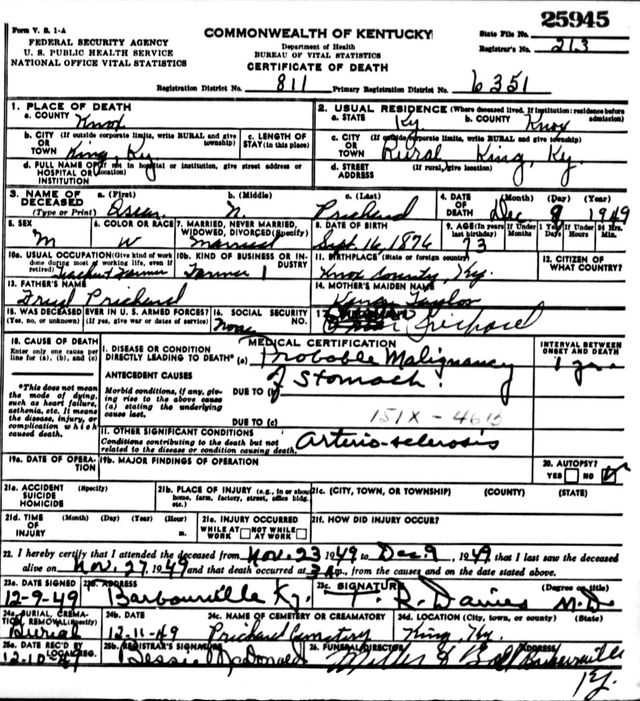 Form V. S. 1-A
FEDERAL SECURITY AGENCY
U. S. PUBLIC HEALTH SERVICE
NATIONAL OFFICE VITAL STATISTICS
COMMONWEALTH OF KENTUCKY
Department of Health
BUREAU OF VITAL STATISTICS
CERTIFICATE OF DEATH
25945
State File No.
Registrar's No. 213
Registration District No. 811 Primary Registration District No. 6351
1. PLACE OF DEATH
a. COUNTY Knox
2. USUAL RESIDENCE (Where deceased lived. If institution: residence before admission)
a. STATE Ky. b. COUNTY Knox
b. CITY (If outside corporate limits, write RURAL and give township) OR TOWN King Ky
c. LENGTH OF STAY (in this place)
c. CITY (If outside corporate limits, write RURAL and give township) OR TOWN Rural King, Ky.
d. FULL NAME OF (If not in hospital or institution, give street address or location) HOSPITAL OR INSTITUTION
d. STREET ADDRESS (If rural, give location)
3. NAME OF DECEASED (Type or Print) a. (First) Oscar b. (Middle) N. c. (Last) Prichard
4. DATE OF DEATH (Month) (Day) (Year) Dec 9 1949
5. SEX M
6. COLOR OR RACE W
7. MARRIED, NEVER MARRIED, WIDOWED, DIVORCED (Specify) Married
8. DATE OF BIRTH Sept. 16, 1876
9. AGE (In years last birthday) 73 If Under 1 Year Months Days If Under 24 Hrs. Hours Min.
10a. USUAL OCCUPATION (Give kind of work done during most of working life, even if retired) Teacher & Farmer
10b. KIND OF BUSINESS OR INDUSTRY Farmer
11. BIRTHPLACE (State or foreign country) Knox County, Ky.
12. CITIZEN OF WHAT COUNTRY?
13. FATHER'S NAME Prichard
14. MOTHER'S MAIDEN NAME Taylor
15. WAS DECEASED EVER IN U. S. ARMED FORCES? (Yes, no, or unknown) (If yes, give war or dates of service)
16. SOCIAL SECURITY NO. None
17. Prichard
18. CAUSE OF DEATH
Enter only one cause per line for (a), (b), and (c)
*This does not mean the mode of dying, such as heart failure, asthenia, etc. It means the disease, injury, or complication which caused death.
MEDICAL CERTIFICATION
INTERVAL BETWEEN ONSET AND DEATH
I. DISEASE OR CONDITION DIRECTLY LEADING TO DEATH* (a) Probable Malignancy 1 yr.
of Stomach.
ANTECEDENT CAUSES
Morbid conditions, if any, giving rise to the above cause (a) stating the underlying cause last.
DUE TO (b)
DUE TO (c)
151X -
II. OTHER SIGNIFICANT CONDITIONS
Conditions contributing to the death but not related to the disease or condition causing death.
Arterio-sclerosis
19a. DATE OF OPERATION
19b. MAJOR FINDINGS OF OPERATION
20. AUTOPSY? YES NO
21a. ACCIDENT SUICIDE HOMICIDE (Specify)
21b. PLACE OF INJURY (e.g., in or about home, farm, factory, street, office bldg. etc.)
21c. (CITY, TOWN, OR TOWNSHIP) (COUNTY) (STATE)
21d. TIME OF INJURY (Month) (Day) (Year) (Hour) m.
21e. INJURY OCCURRED WHILE AT WORK NOT WHILE AT WORK
21f. HOW DID INJURY OCCUR?
22. I hereby certify that I attended the deceased from Nov. 23 1949 to Dec. 9, 1949 that I last saw the deceased
alive on Nov. 27 1949 and that death occurred at 3 A.m., from the causes and on the date stated above.
23a. DATE SIGNED 12-9-49
23b. ADDRESS Barbourville Ky.
23c. SIGNATURE T. R. Davies (Degree or title) M.D.
24a. BURIAL, CREMATION, REMOVAL (Specify) Burial
24b. DATE 12-11-49
24c. NAME OF CEMETERY OR CREMATORY Prichard Cemetery
24d. LOCATION (City, town, or county) (State) King, Ky.
25a. DATE REC'D BY LOCAL REG. 12-10-49
25b. REGISTRAR'S SIGNATURE Bessie McDonald
26. FUNERAL DIRECTOR ADDRESS Barbourville
Ky.